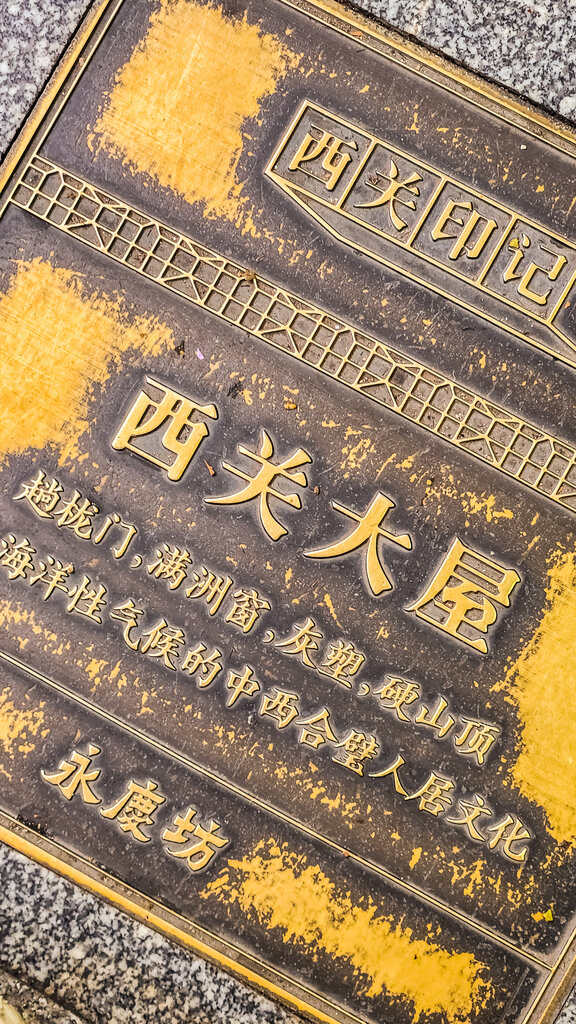 西关印记
西关大屋
趟栊门,满洲窗,灰塑,硬山顶
海洋性气候的中西合璧人居文化
永庆坊